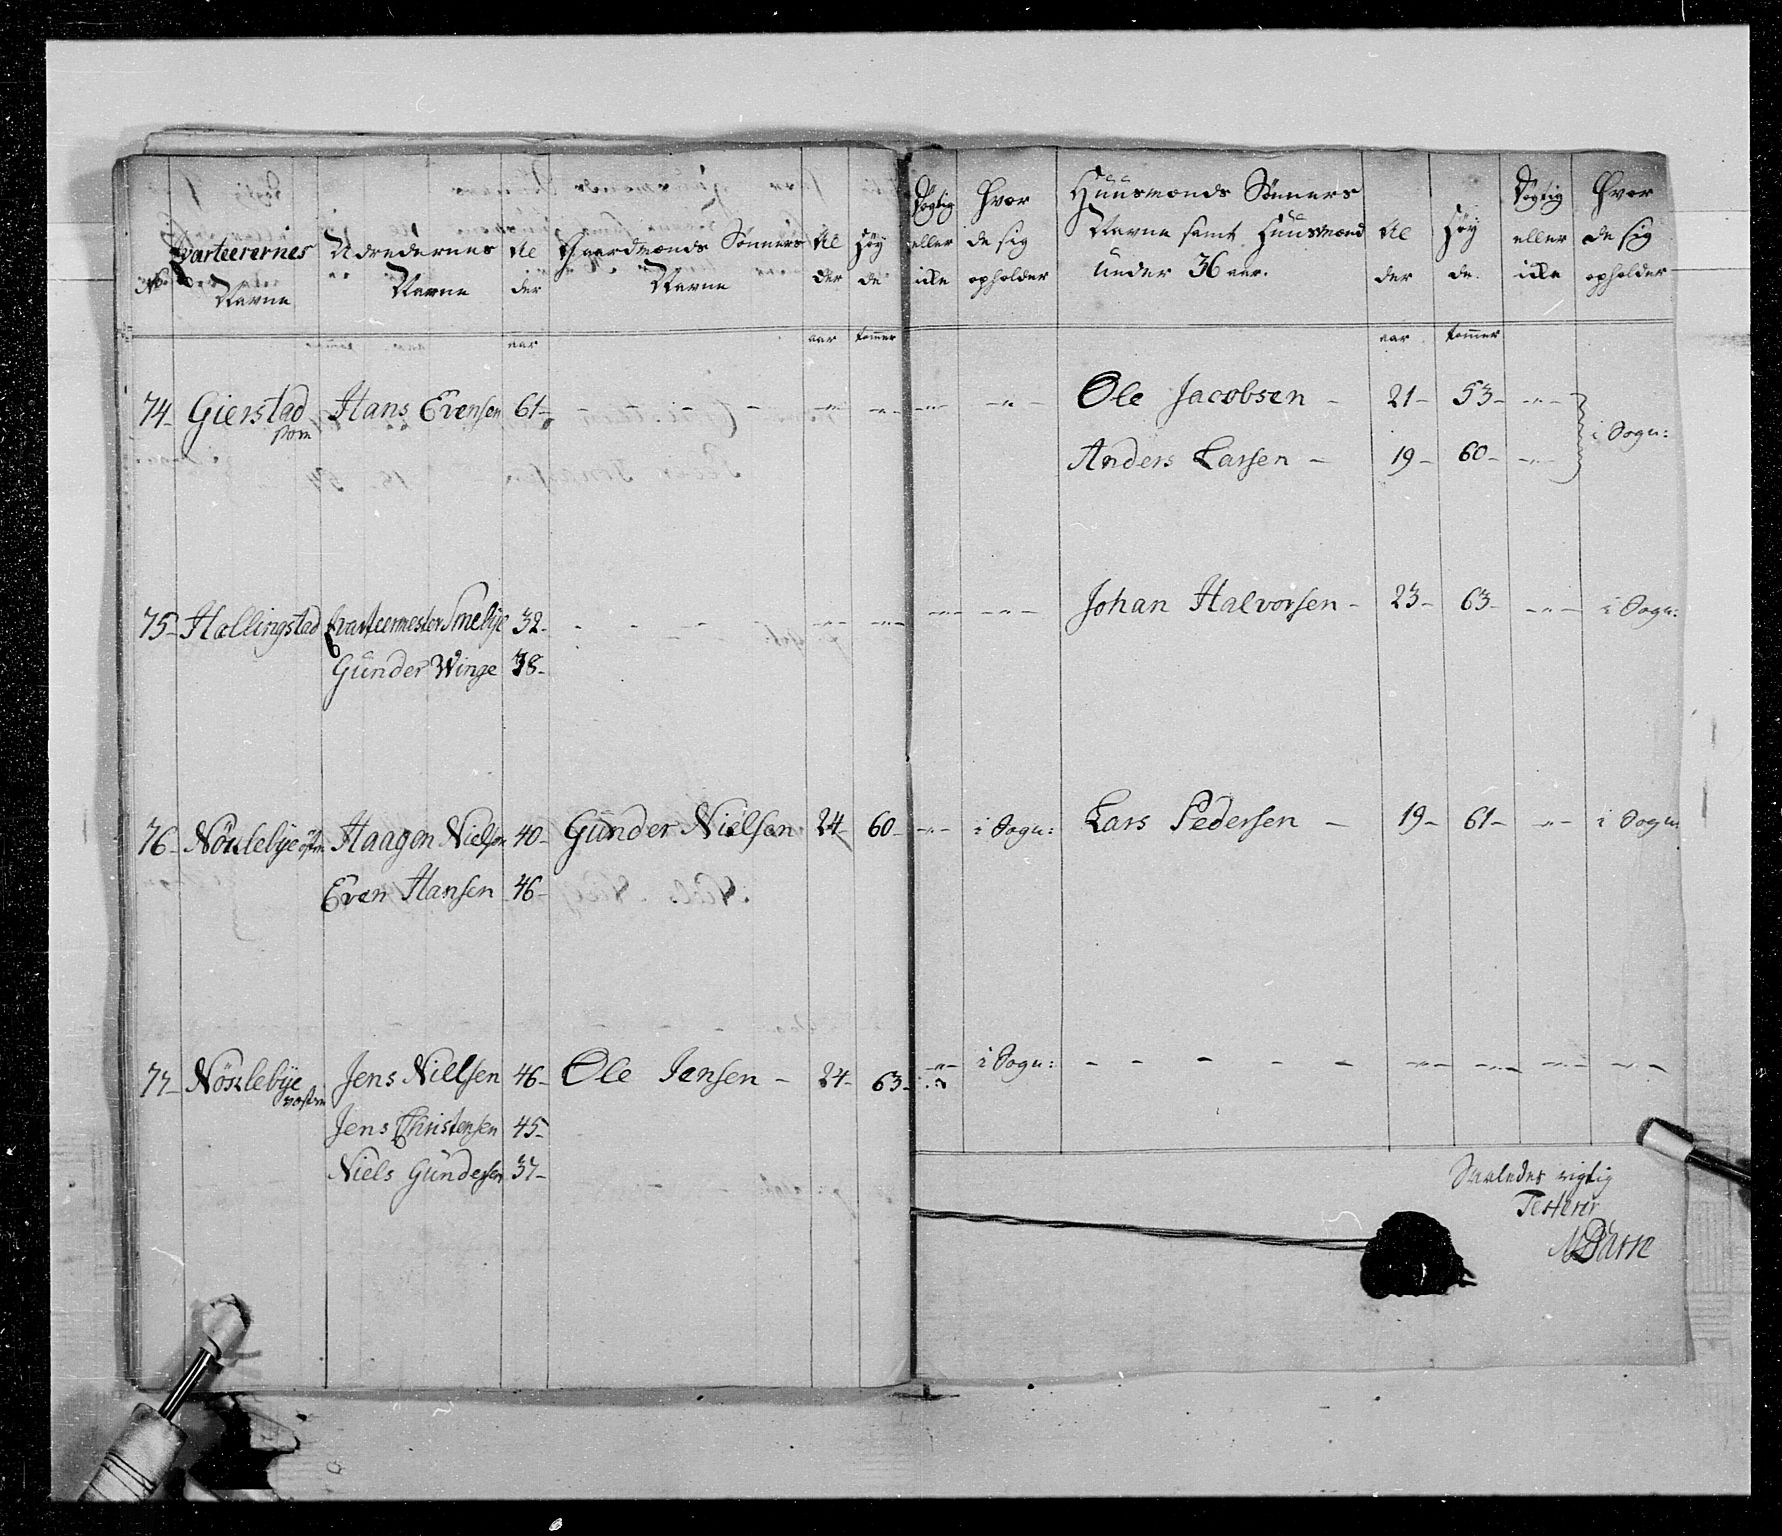 No Qvarteerernes Navne | Udredernes Navne | Al der | Gaardmænds Sønners Navne | Al der | Høy de | Dygtig eller ikke | Hvor de sig opholder | Huusmænds Sønners Navne samt Huusmænd under 36 aar. | Al der | Høy de. | Dygtig eller ikke | Hvor de sig opholder
aar | aar | tommer | aar | tommer
74- Gierstad | Hans Evensen | 61- | - - - - | Ole Jacobsen - | 21- | 53- | -"- | i Sogn:
Anders Larsen - | 19- | 60- | -"-
75- Hallingstad | Qvarteermester Smebye | 32- | - - - - | Johan Halvorsen - | 23- | 63- | -"- | i Sogn:
Gunder Winge | 38-
76- Nöslebÿe östre | Haagen Nielsen | 40- | Gunder Nielsen | 24- | 60- | -"- | i Sogn: | Lars Pedersen - | 19- | 61- | -"- | i Sogn:
Even Hansen | 46-
77- Nöslebÿe væstre | Jens Nielsen | 46- | Ole Jensen - | 24- | 63- | -"- | i Sogn: | - - - - -
Jens Christensen | 45-
Niels Gundersen | 37-
Saaledes rigtig
Testerer